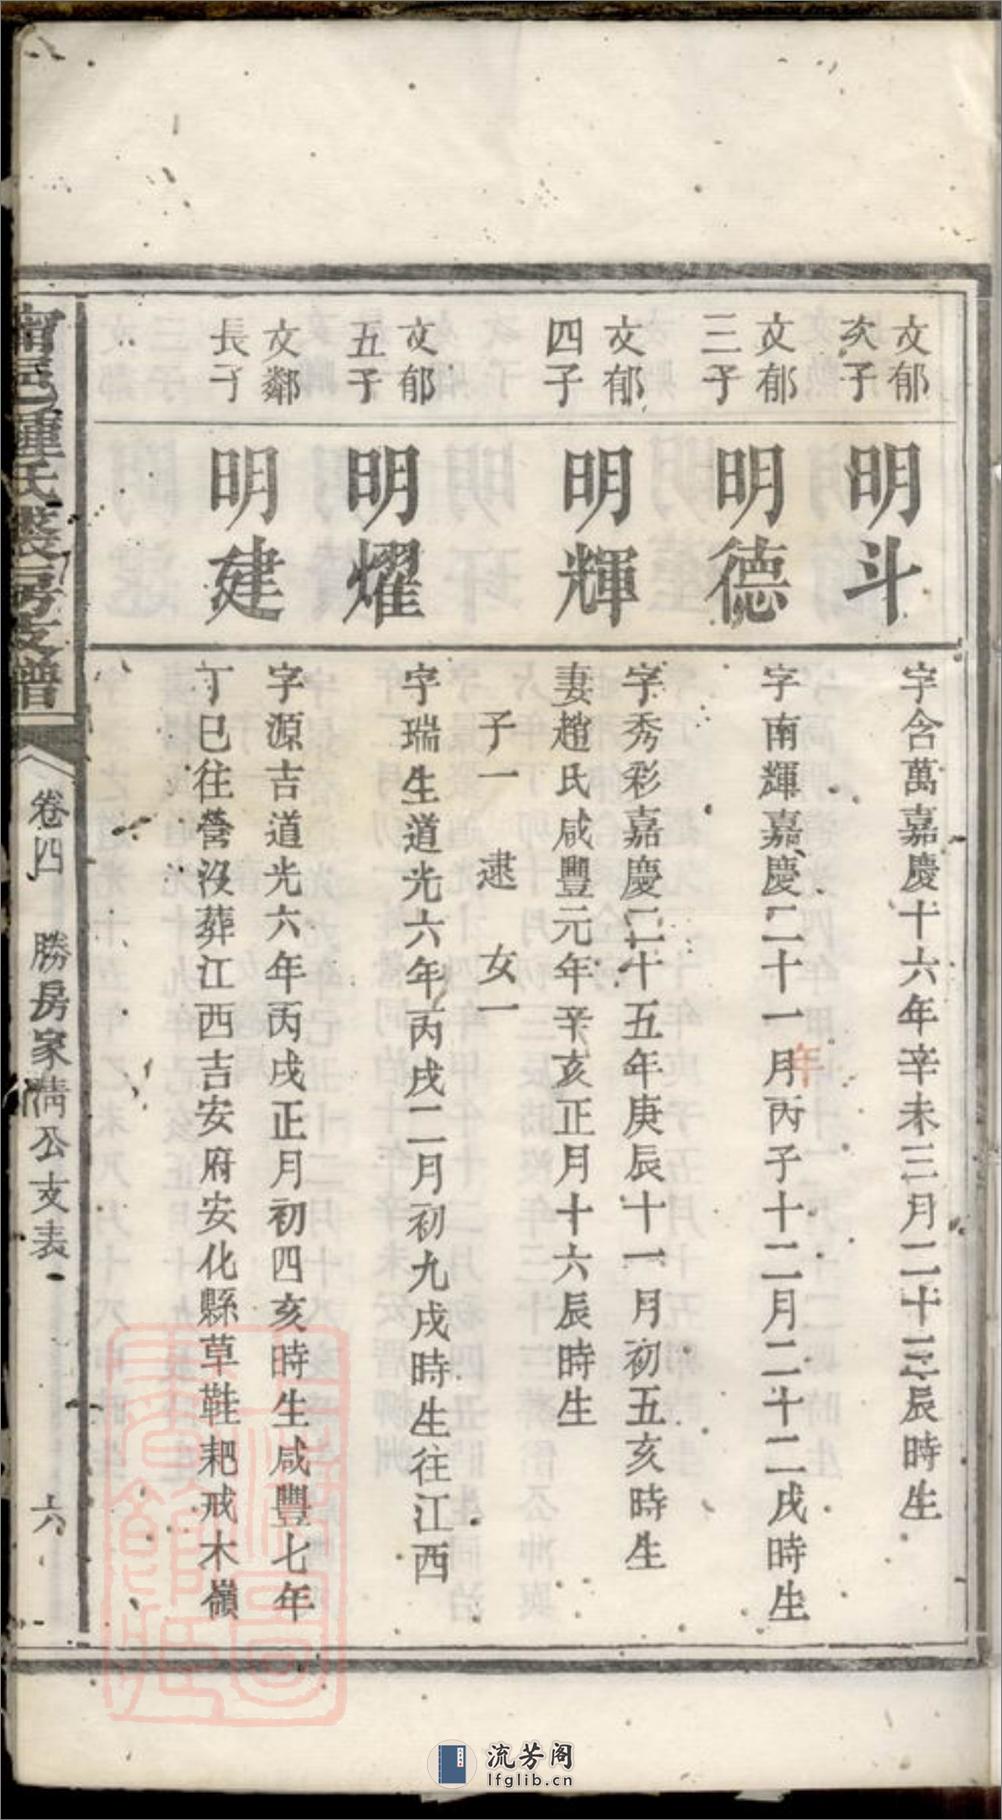 文郁
次子
明斗
字含萬嘉慶十六年辛未三月二十三辰時生
文郁
三子
明德
字南輝嘉慶二十一月丙子十二月二十二戌時生
年
文郁
四子
明輝
字秀彩嘉慶二十五年庚辰十一月初五亥時生
妻趙氏咸豐元年辛亥正月十六辰時生
子一 逮 女一
文郁
五子
明燿
字瑞生道光六年丙戌二月初九戌時生往江西
文鄰
長子
明建
字源吉道光六年丙戌正月初四亥時生咸豐七年
丁巳往營没葬江西吉安府安化縣草鞋耙戒木嶺
氏 房支譜
卷四 勝房家清公支表 六
流芳阁
lfglib.cn